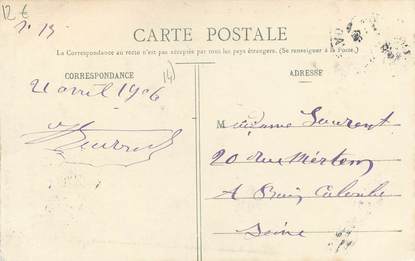 12 €
CARTE POSTALE
La Correspondance au recto n'est pas acceptée par tous les pays étrangers. (Se renseigner à la Poste.)
CORRESPONDANCE
21 avril 1906
ADRESSE
Madame Laurent
20 rue
A Bois Colombe
Seine